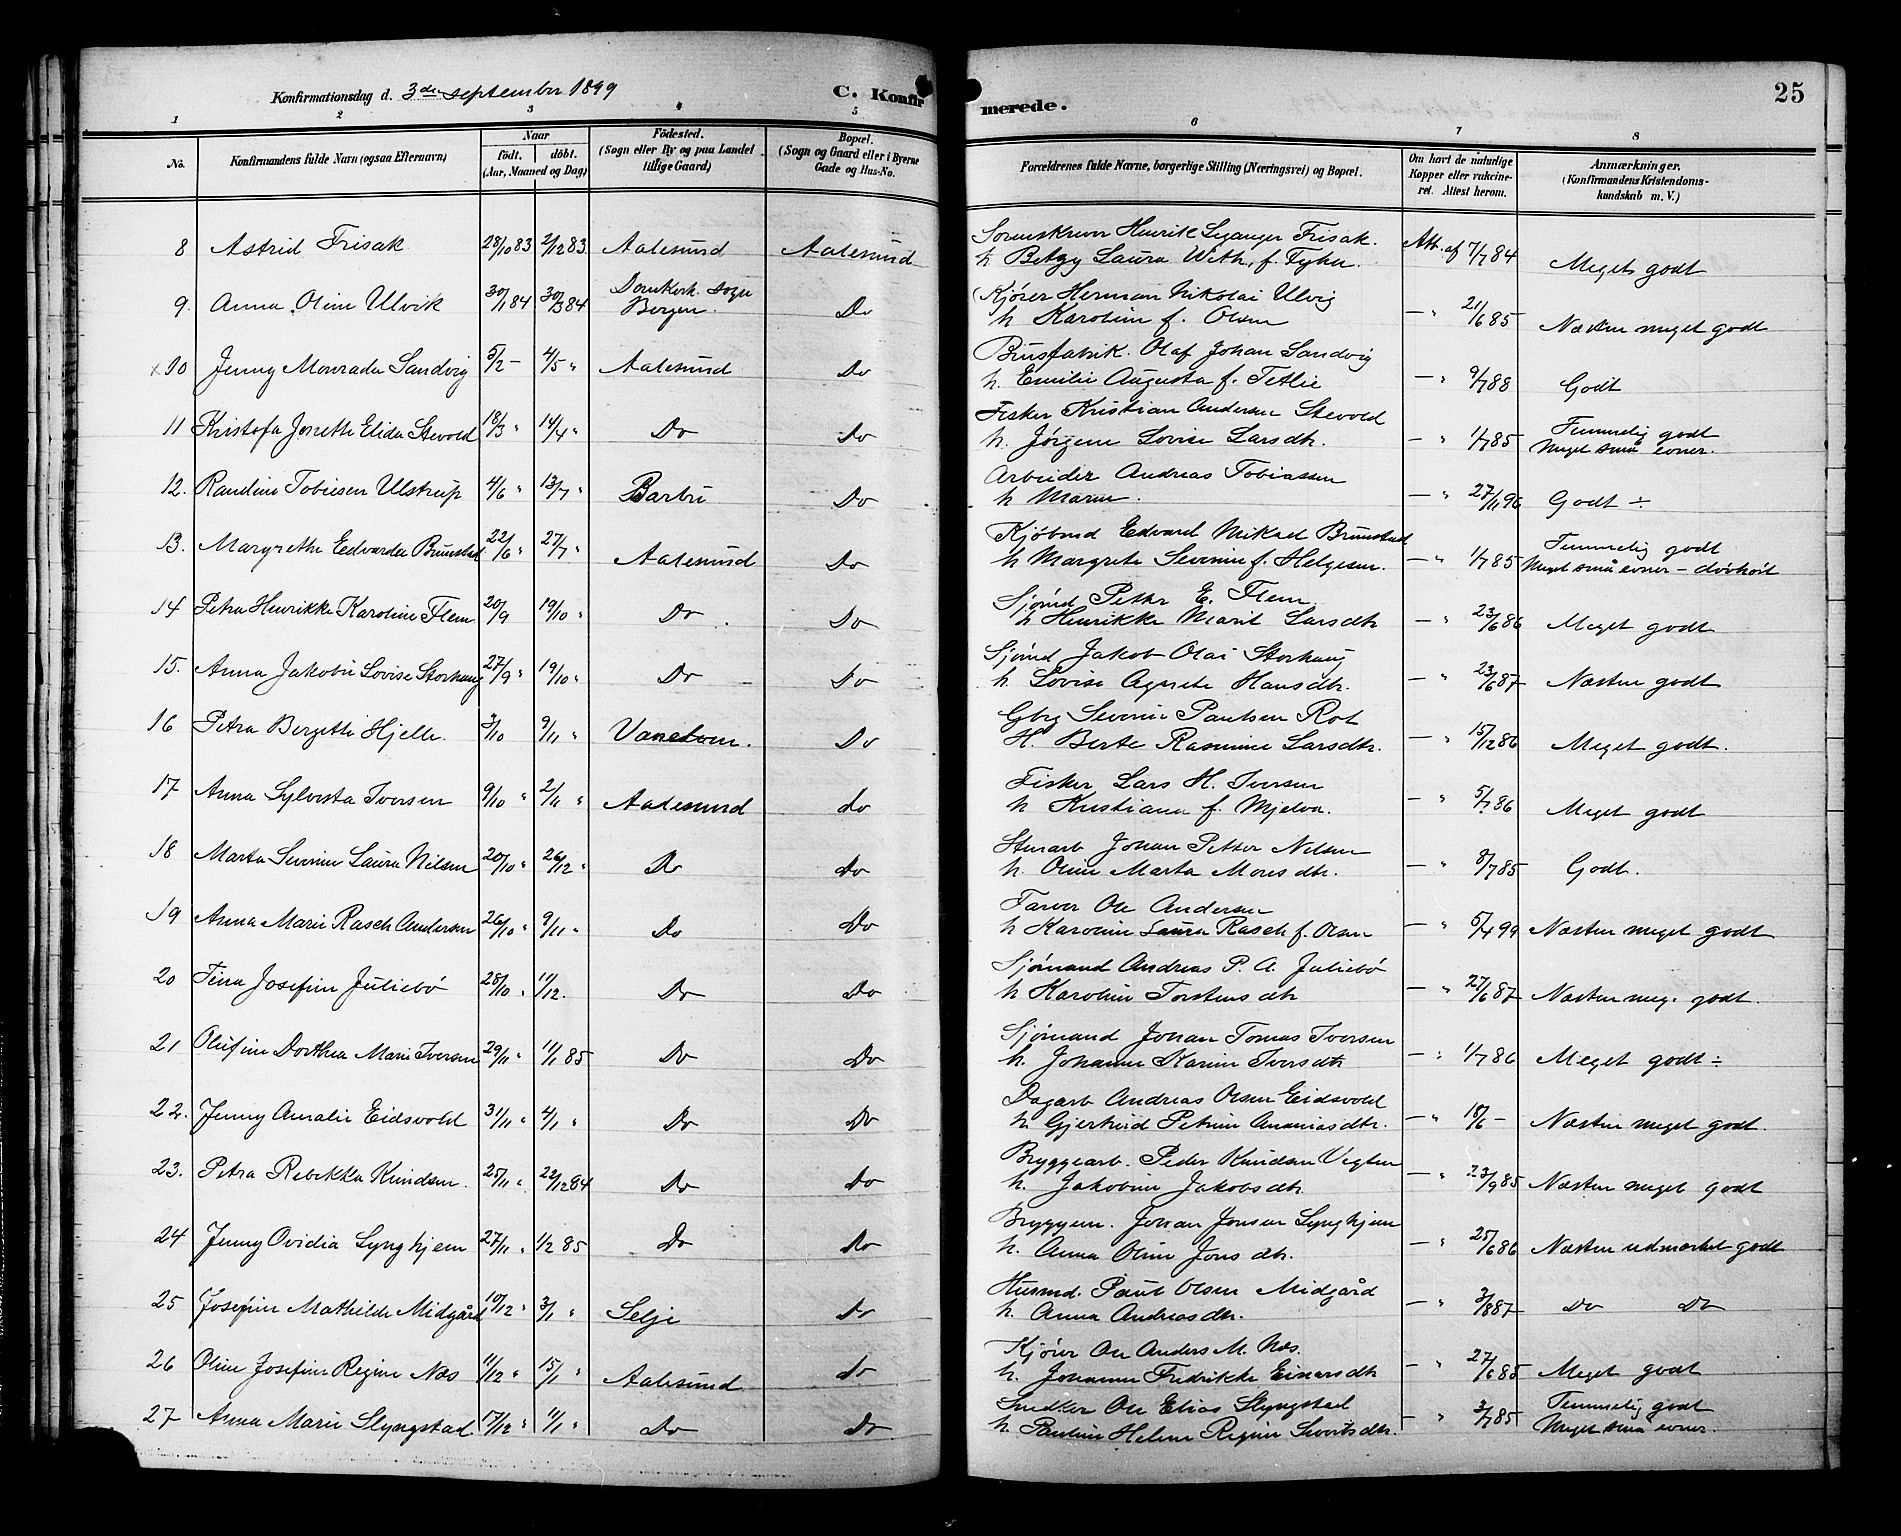 Konfirmationsdag d. 3de september 1899
C. Konfirmerede.
25
1 2 3 4 5 6 7 8
No. Konfirmandens fulde Navn (ogsaa Efternavn) Naar født. døbt. (Aar, Maaned og Dag) Fødested. (Sogn eller By og paa Landet tillige Gaard) Bopæl. (Sogn og Gaard eller i Byerne Gade og Hus-No. Forældrenes fulde Navne, borgerlige Stilling (Næringsvei) og Bopæl. Om havt de naturlige Kopper eller vakcineret. Attest herom. Anmærkninger. (Konfirmandens Kristendomskundskab m. V.)
8 Astrid Frisak 28/10 83 2/12 83 Aalesund Aalesund Sorenskriver Henrik Leganger Frisak. h Betzy Laura Weth, f. Att. af 7/7 84 Meget godt
9. Anna Oline Ulvik 30/1 84 30/3 84 Domkirk. sogn Bergen. Do Kjører Herman Nikolai Ulvig h Karoline f. Olsen — " 21/6 85 Næsten meget godt
x 10 Jenny Monrada Sandvig 5/2 - 4/5 " Aalesund Do Brusfabrik. Olaf Johan Sandvig h. Emilie Augusta f. Tetlie — " 9/7 88 Godt
11 Kristofa Jonette Elida Stevold 18/3 " 14/4 " Do Do Fisker Kristian Andersen Stevold h. Jørgine Lovise Larsdtr. — " 1/7 85 Temmelig godt Meget små evner.
12. Randine Tobiesen Ulstrup 4/6 " 13/7 " Barbu Do Arbeider Andreas Tobiassen h Maren. — " 27/11 96 Godt ÷
13. Margrethe Edvarda Brunstad 22/6 " 27/7 " Aalesund Do Kjøbmd Edvard Mikael Brunstad h Margrete Severine f. Helgesen. — " 1/7 85 Temmelig godt Meget små evner - døvhørt
14 Petra Henrikke Karoline Flem 20/9 19/10 " Do Do Sjømd Petter E. Flem h Henrikke Marit Larsdtr — " 23/6 86 Meget godt
15. Anna Jakobie Lovise Storhaug 27/9 " 19/10 " Do Do Sjømd Jakob Olai Storhaug h. Lovise Agnete Hansdtr. — " 23/6 87 Næsten godt
16 Petra Bergette Hjelle. 3/10 9/11 " Vanelven. Do Gbrg Severin Paulsen Rot H. Berte Rasmine Larsdtr. — " 15/12 86 Meget godt.
17 Anna Sylvesta Iversen 9/10 " 2/11 " Aalesund do Fisker Lars H. Iversen h Kristiane f. Mjelva. — " 5/7 86 Meget godt
18 Marta Severine Laura Nilsen 20/10 " 26/12 " Do Do Stenarb Johan Petter Nelsen h. Oline Marta Monsdtr. — " 8/7 85 Godt.
19 Anna Marie Rasch Andersen 26/10 " 9/11 " Do Do Farver Ole Andersen h Karoline Laura Rasch f. Olsen — " 5/4 99 Næsten meget godt
20 Tina Josefine Juliebø 28/10 " 11/12. Do Do Sjømand Andreas P. A. Juliebø h Karoline Torstensdtr — " 27/6 87 Næsten meg. godt.
21 Olufine Dorthea Marie Iversen 29/11 " 11/1 85 Do Do Sjømand Johan Tomas Iversen h. Johanne Karine Iversdtr — " 1/7 86 Meget godt ÷
22. Jenny Amalie Eidsvold 31/11 " 4/1 " Do Do Dagarb Andreas Olsen Eidsvold h. Gjertrud Petrine Ananiasdtr. — " 18/6 - Næsten meget godt.
23. Petra Rebekka Knudsen. 25/11 " 22/12 84 Do Do Bryggearb. Peder Knudsen Vegten h. Jakobine Jakobsdtr — " 23/9 85 Næsten meget godt
24 Jenny Ovidia Lynghjem 27/11 " 1/2 85 Do Do Bryggem. Johan Jonsen Lynghjem h. Anna Oline Jonsdtr. — " 25/6 86 Næsten udmærket godt
25 Josefine Mathilde Midgård 10/12 " 3/1 " Selje Do Husmd. Paul Olsen Midgård h. Anna Andreasdtr. — " 3/8 87 Do Do
26 Oline Josefine Regine Næs 11/12 " 15/1 " Aalesund do Kjører Ole Anders M. Næs. h. Johanne Fredrikke Einersdtr — " 27/6 85 Meget godt
27 Anna Marie Slyngstad 17/12 " 11/1 " Do Do Snedker Ole Elias Slyngstad h. Pauline Helene Regine Sivertsdtr. — " 3/7 85 Temmelig godt Meget små evner.